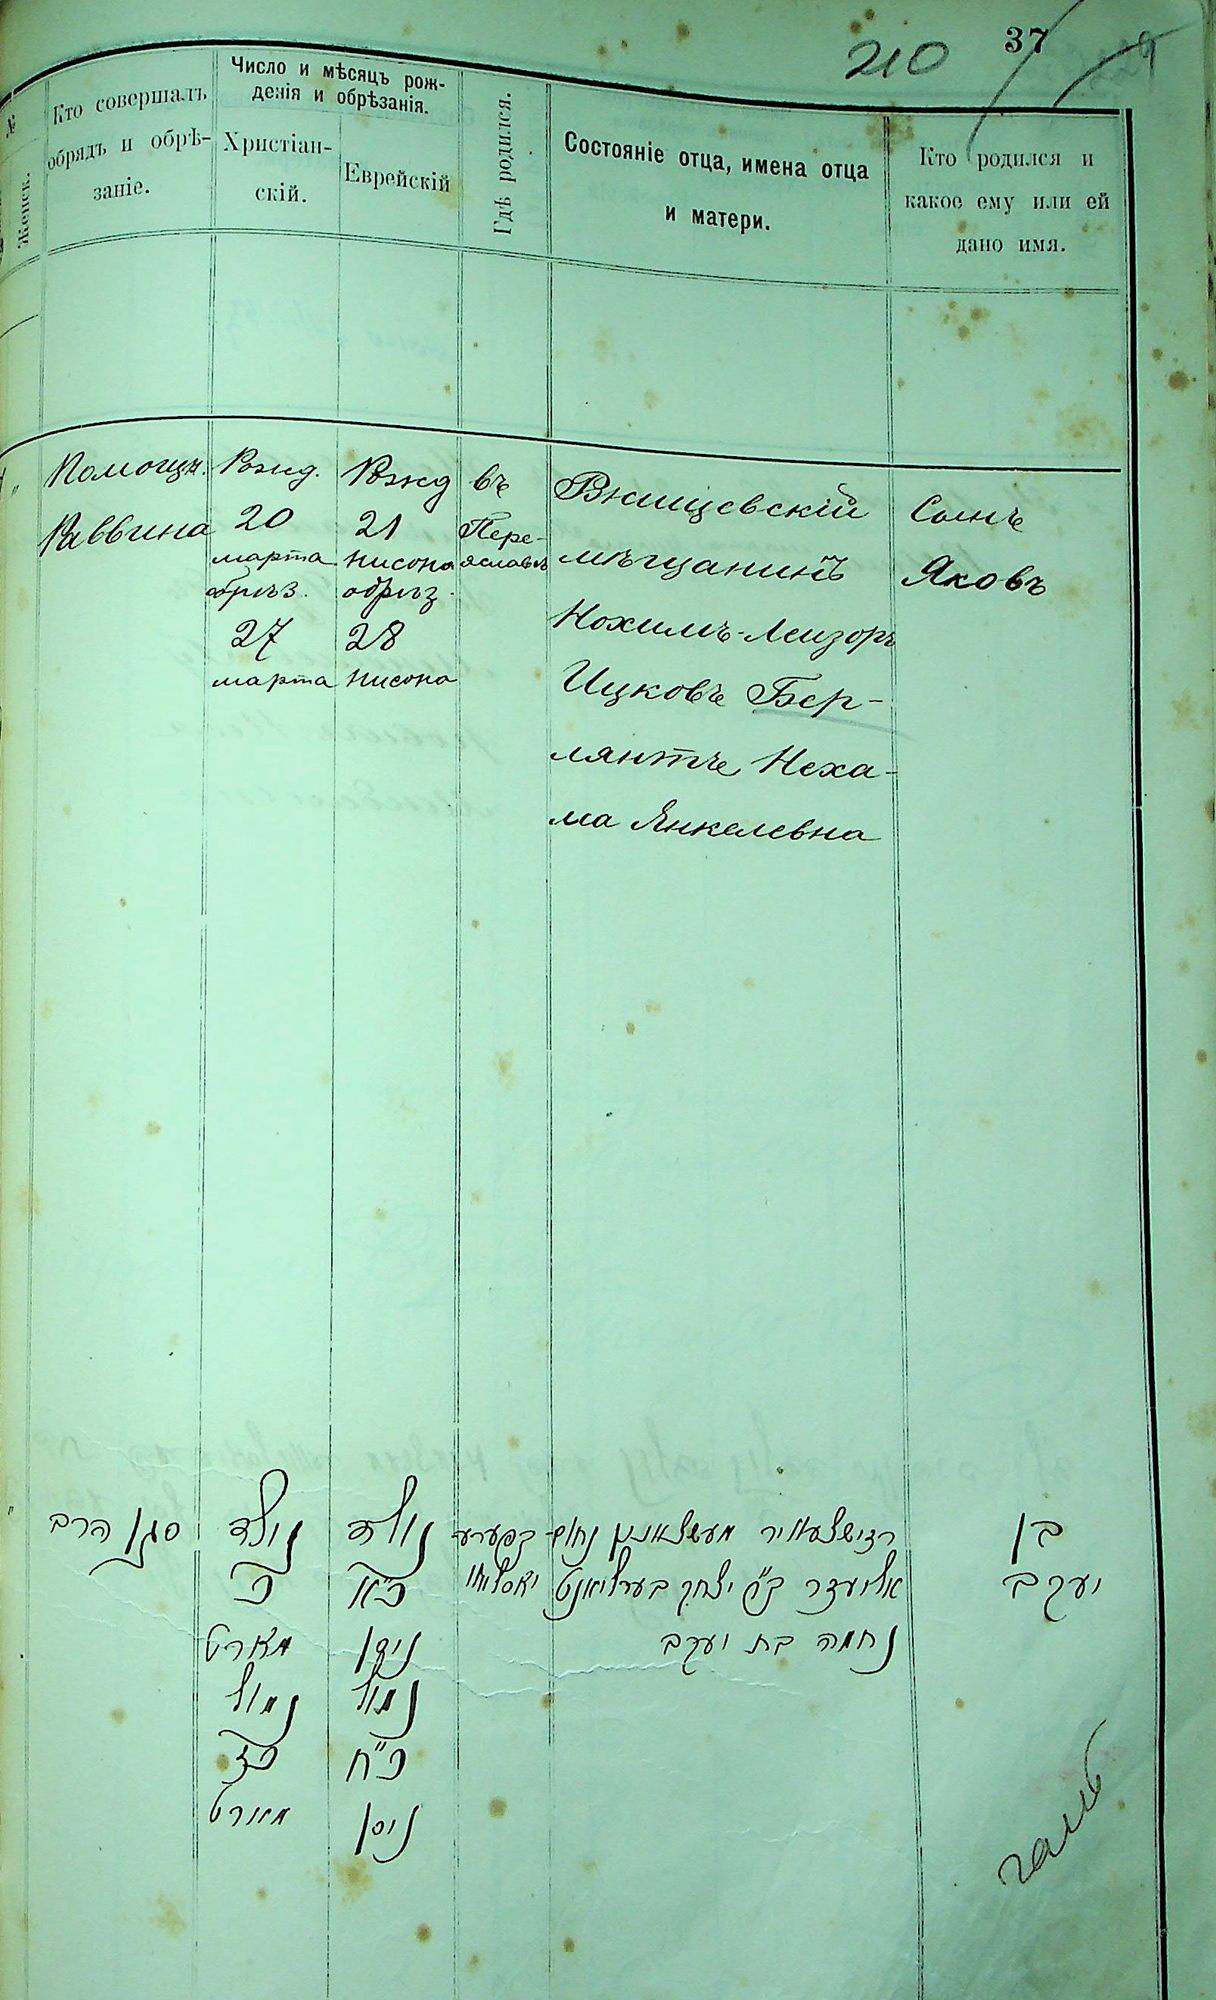 37
210
№
Женск.
Кто совершалъ
обрядъ и обрѣ-
заніе.
Число и мѣсяцъ рож-
денія и обрѣзанія.
Христіан-
скій.
Еврейскій
Гдѣ родился.
Состояніе отца, имена отца
и матери.
Кто родился и
какое ему или ей
дано имя.
Помощн.
Раввина
Рожд.
20
марта
обрѣз.
27
марта
Рожд
21
нисона
обрѣз.
28
нисона
въ
Пере-
яславлѣ
Ржищевскій
мѣщанинъ
Нохимъ-Леизоръ
Ицковъ Бер-
лянтъ, Неха-
ма Янкелевна
Сынъ
Яковъ
סגן הרב
נולד
כ
מארט
נמול
כז
מארט
נולד
כ"א
ניסן
נמול
כ"ח
ניסן
נחום
אליעזר ב"ר יצחק בערליאנט
נחמה בת יעקב
בן
יעקב